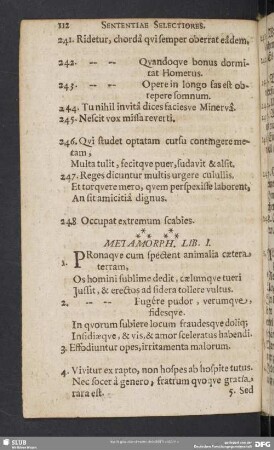 112 SENTENTIAE SELECTIORES.
241. Ridetur, chordâ qvi semper oberrat eâdem.
242. -- -- Qvandoqve bonus dormi-
tat Homerus.
243. -- -- Opere in longo fas est ob-
repere somnum.
244. Tu nihil invitâ dices faciesve Minervâ.
245. Nescit vox missa reverti.
246. Qvi studet optatam cursu contingere me-
tam,
Multa tulit, fecitqve puer, sudavit & alsit.
247. Reges dicuntur multis urgere culullis.
Et torqvere mero, qvem perspexisse laborent,
An sit amicitiâ dignus.
248 Occupat extremum scabies.
METAMORPH. LIB. I.
1. PRonaqve cum spectent animalia cætera
terram,
Os homini sublime dedit, cælumqve tueri
Jussit, & erectos ad sidera tollere vultus.
2. -- -- Fugêre pudor, verumqve,
fidesqve.
In qvorum subiere locum fraudesqve doliq;
Insidiæqve, & vis, & amor sceleratus habendi.
3. Effodiuntur opes, irritamenta malorum.
4. Vivitur ex rapto, non hospes ab hospite tutus.
Nec socer à genero, fratrum qvoqve gratia
rara est.
5. Sed
SLUB
DFG